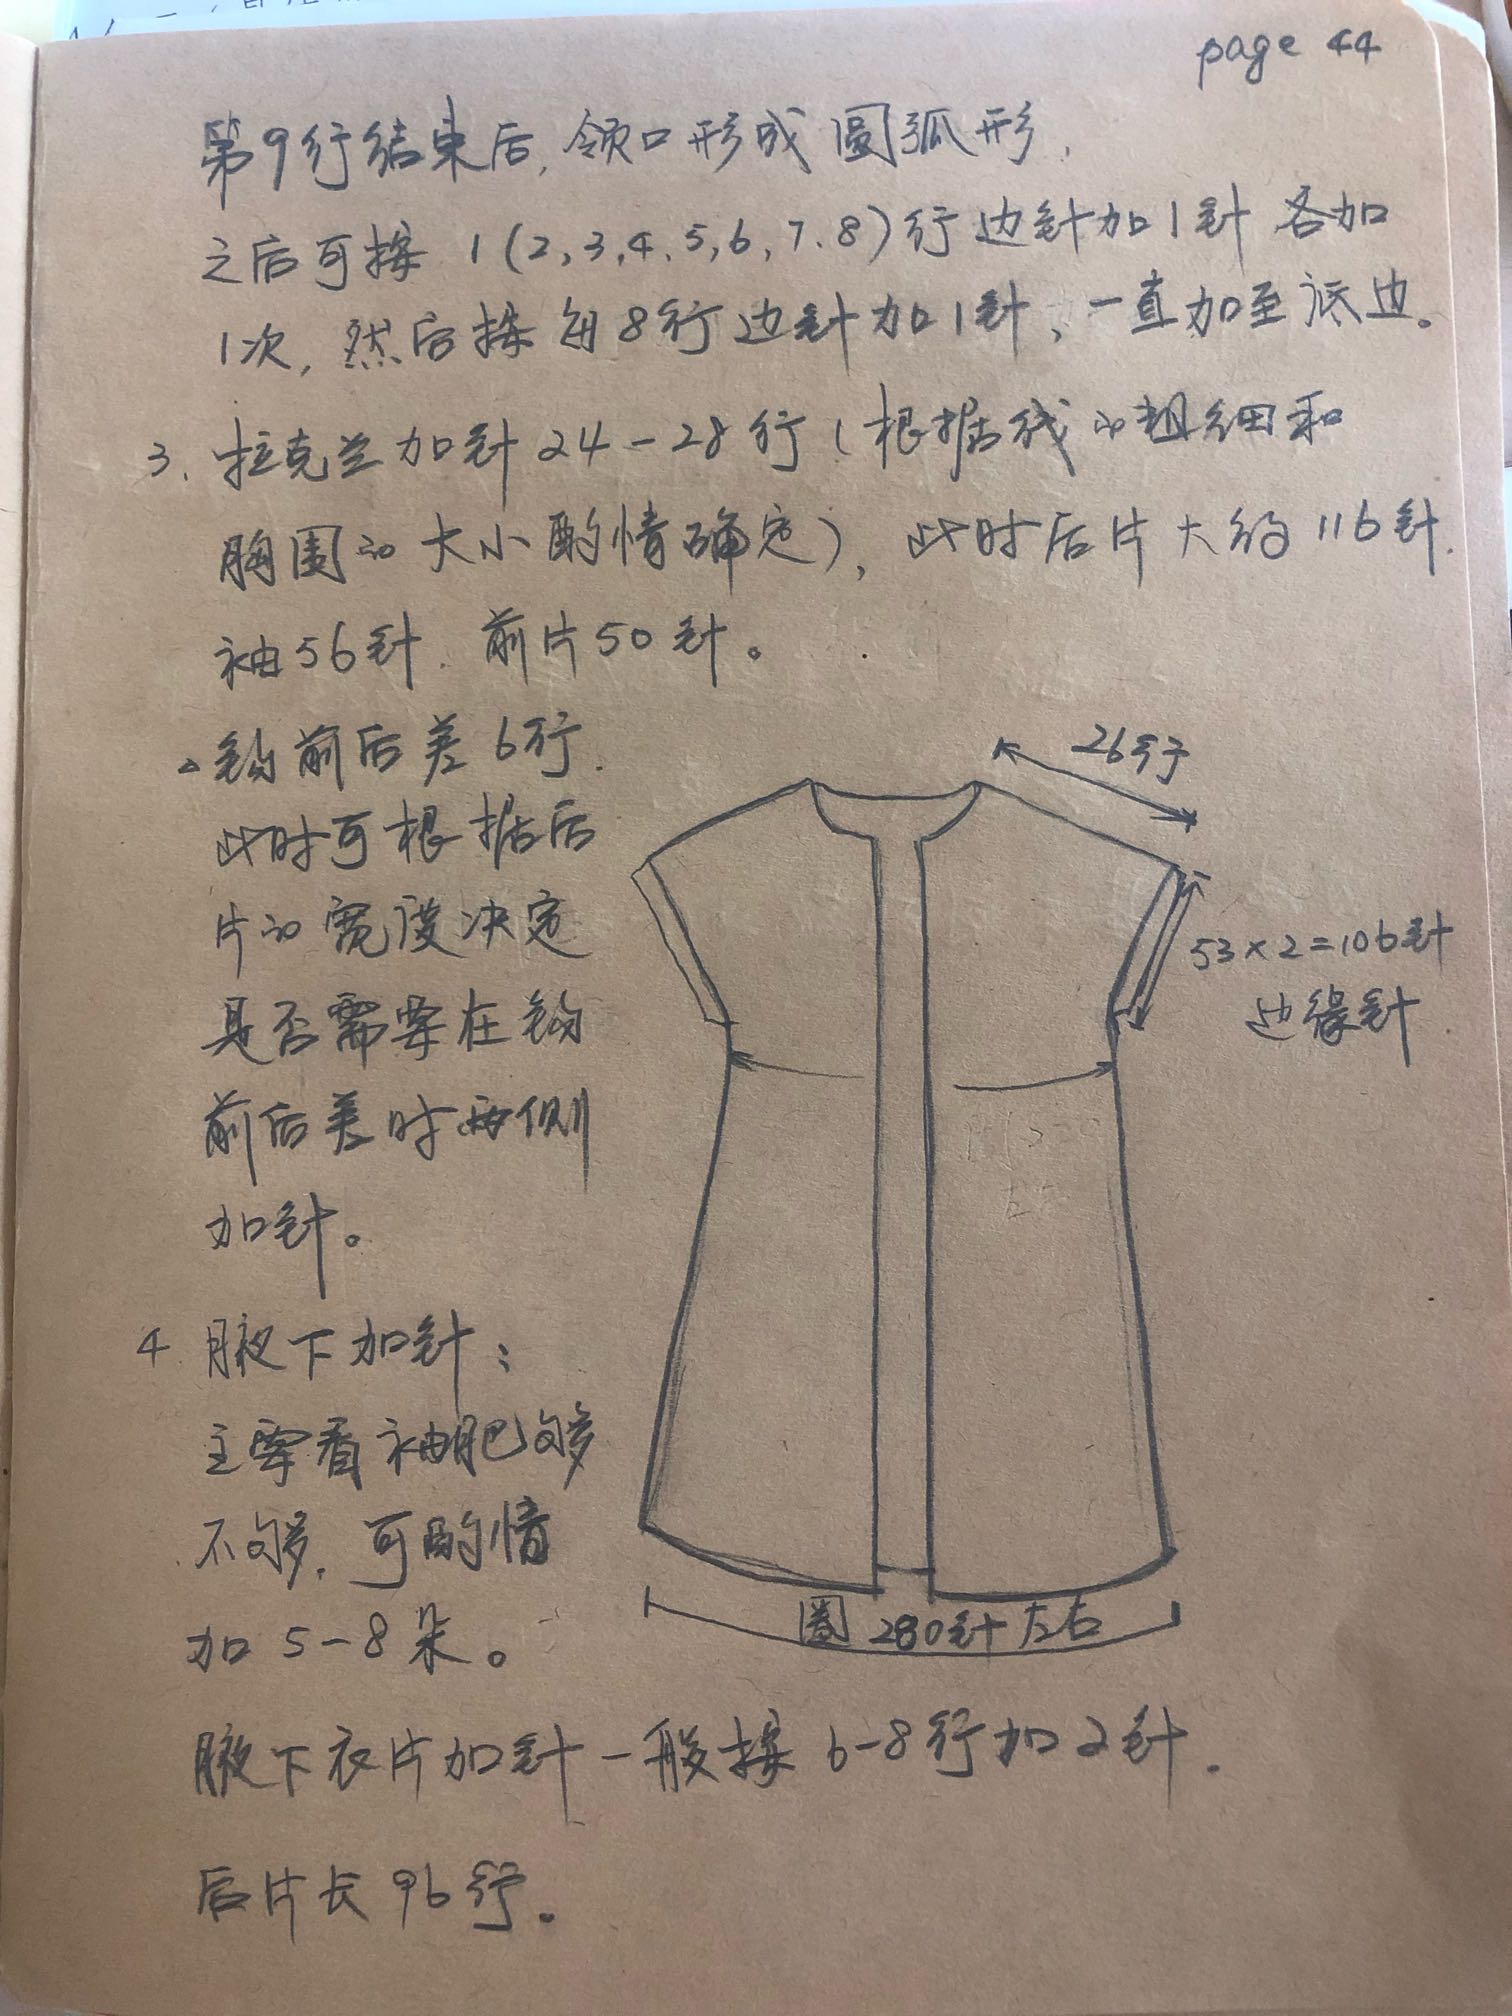 page 44
第9行结束后,领口形成圆弧形,
之后可按1(2,3,4,5,6,7,8)行边针加1针各加
1次,然后按每8行边针加1针,一直加至底边。
3、拉克兰加针24-28行(根据线的粗细和
胸围的大小酌情确定),此时后片大约116针,
袖56针,前片50针。
钩前后差6行.
此时可根据后
片的宽度决定
是否需要在钩
前后差时两侧
加针。
26行
53×2=106针
边缘针
4 腋下加针:
主要看袖肥够
不够,可酌情
加5-8朵。
圈280针左右
腋下衣片加针一般按6-8行加2针.
后片长96行。